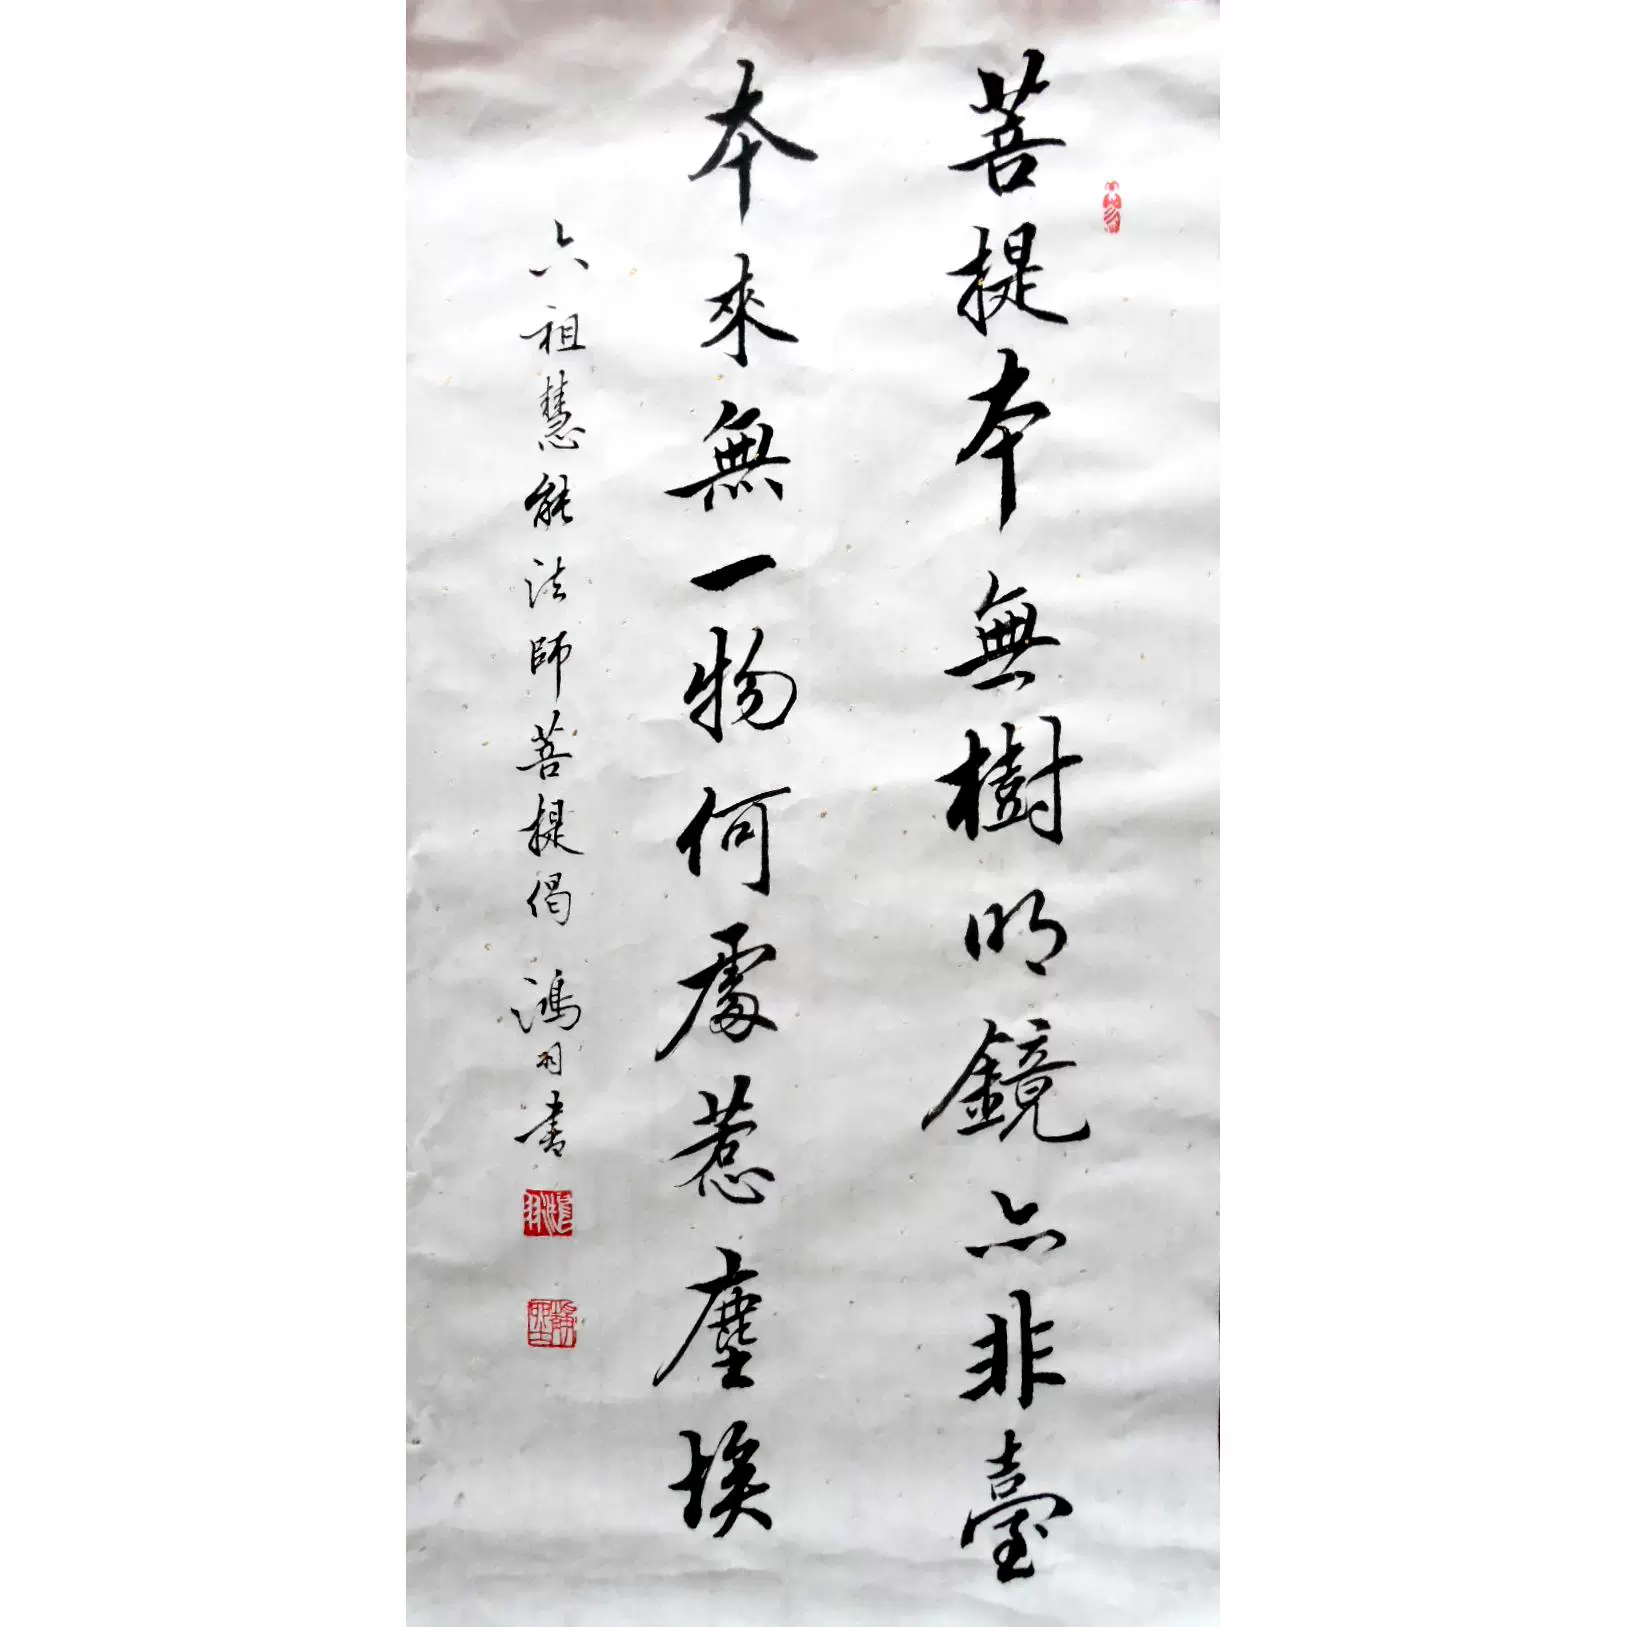 菩提本無樹明鏡亦非臺
本來無一物何處惹塵埃
六祖慧能法師菩提偈 鴻羽書